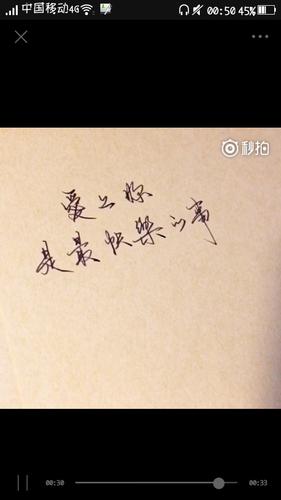 中国移动4G 00:50 45%
秒拍
爱上你
是最快樂的事
00:30 00:33